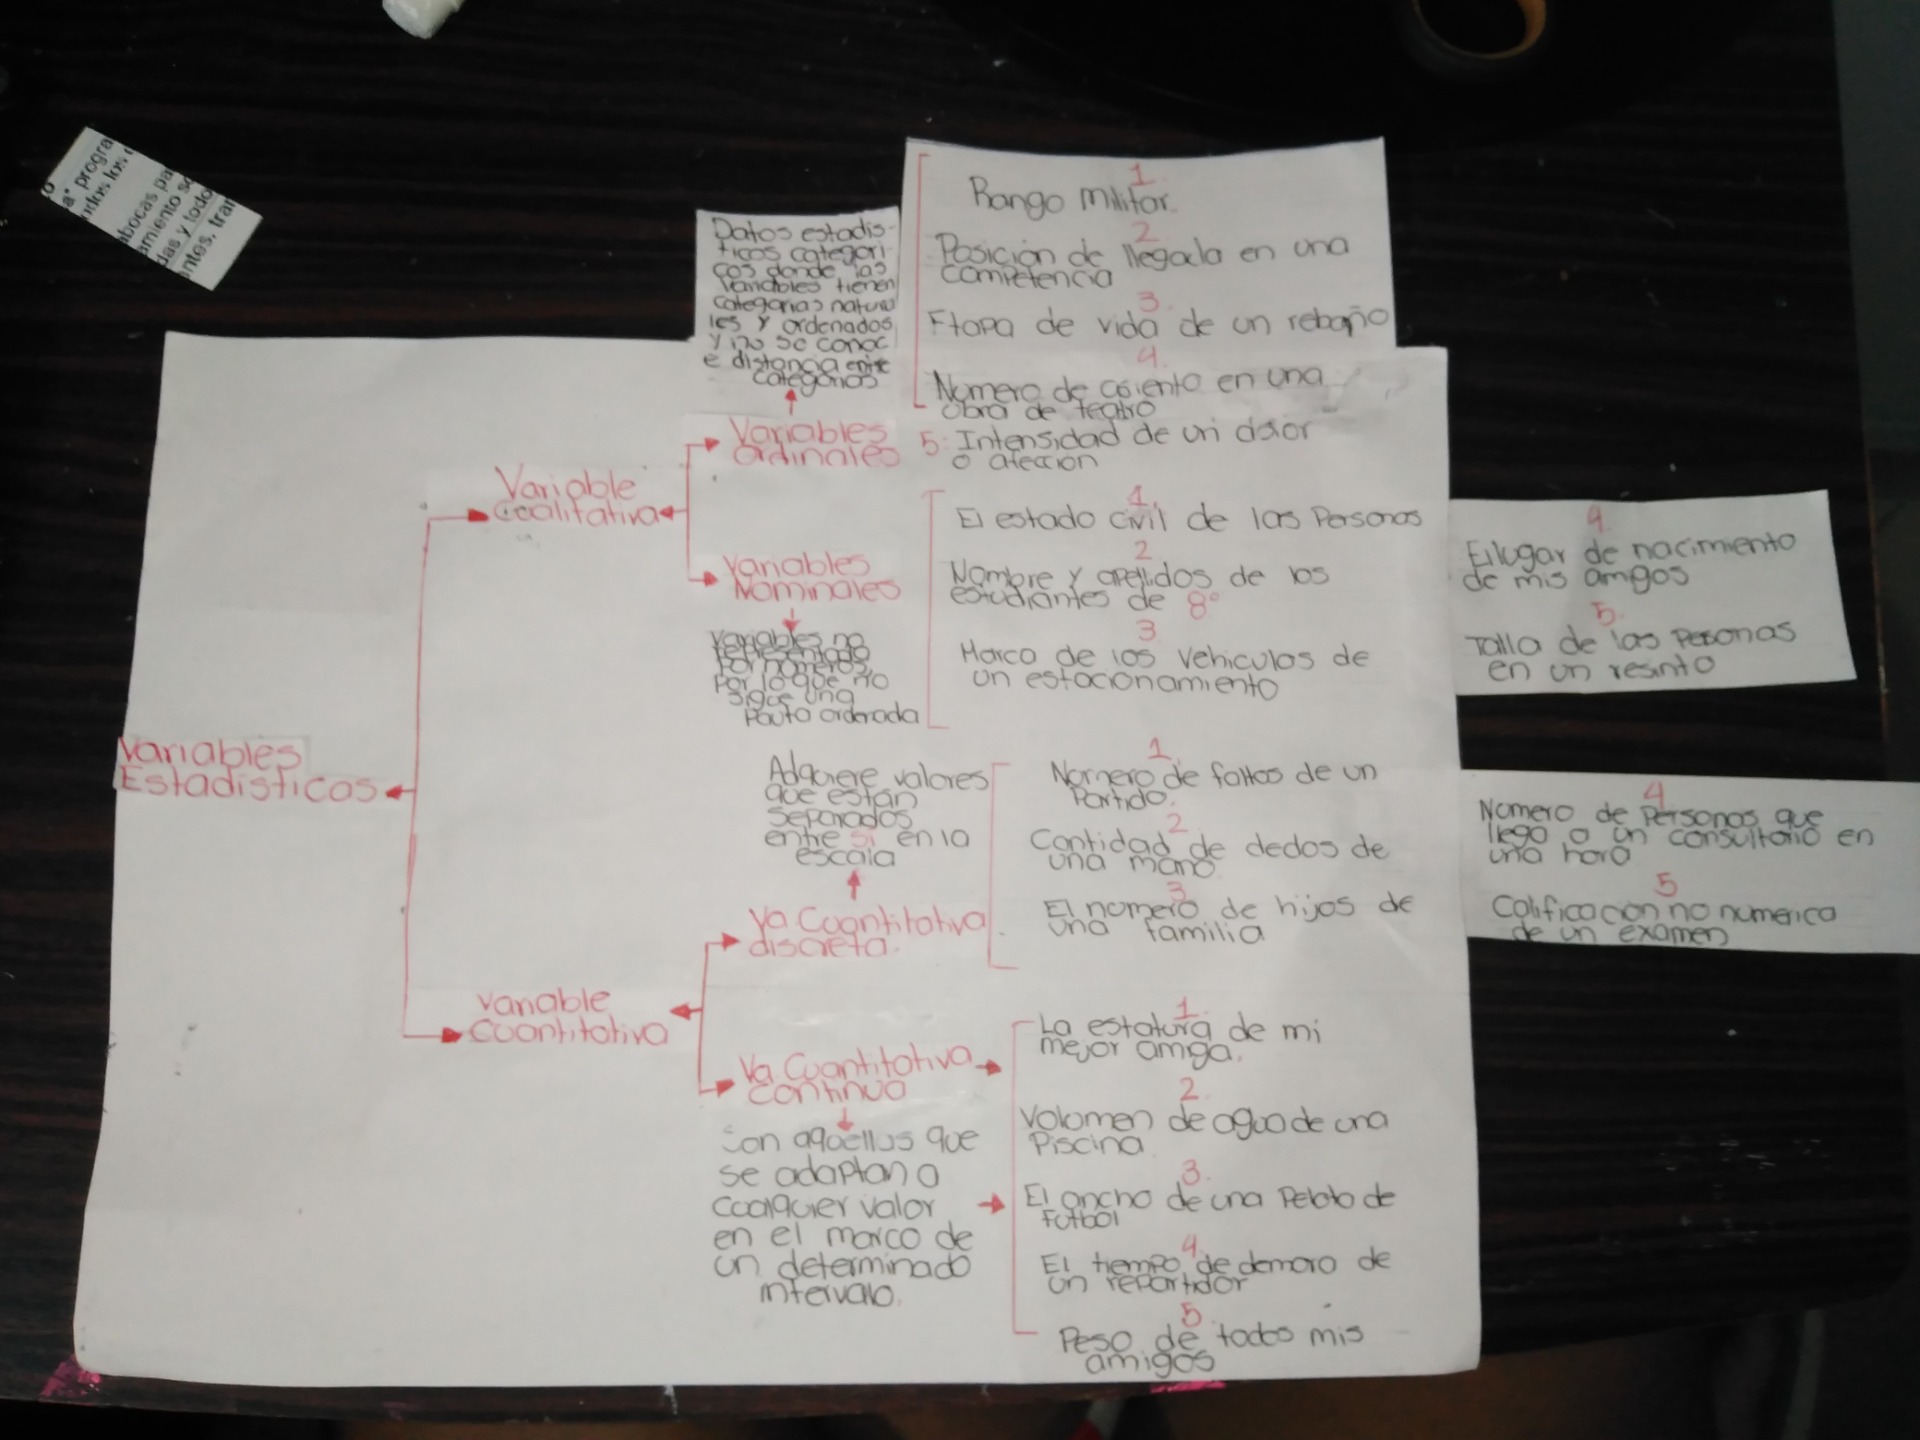 a" progra
udos los
abocas pa
amiento so
das y todo
antes, tran
Variables
Estadisticas
Variable
Cualitativa
Datos estadis-
ticos categori
cos donde las
variables tienen
categorias natura
les y ordenados
y no se conoc
e distancia entre
categorias
Variables
Ordinales
1.
Rango militar.
2.
Posición de llegada en una
competencia
3.
Etapa de vida de un rebaño
4.
Numero de asiento en una
obra de teatro
5. Intensidad de un dolor
o afección
Variables
Nominales
Variables no
representado
por números,
por lo que no
sigue una
Pauta ordenada
1
El estado civil de las Personas
2
Nombre y apellidos de los
estudiantes de 8°
3.
Marca de los vehiculos de
un estacionamiento
4.
El lugar de nacimiento
de mis amigos
5.
Talla de las Personas
en un resinto
Variable
Cuantitativa
Adquiere valores
que están
separados
entre si en la
escala
Va Cuantitativa
discreta.
1
Número de faltas de un
Partido.
2
Cantidad de dedos de
una mano.
3
El numero de hijos de
una familia
4
Numero de Personas que
llego a un consultorio en
una hora
5
Calificación no numerica
de un examen
Va Cuantitativa
continua
Son aquellus que
se adaptan a
cualquier valor
en el marco de
un determinado
intervalo.
1.
La estatura de mi
mejor amiga.
2.
Volumen de agua de una
Piscina
3.
El ancho de una Pelota de
futbol
4.
El tiempo de demora de
un repartidor
5.
Peso de todos mis
amigos